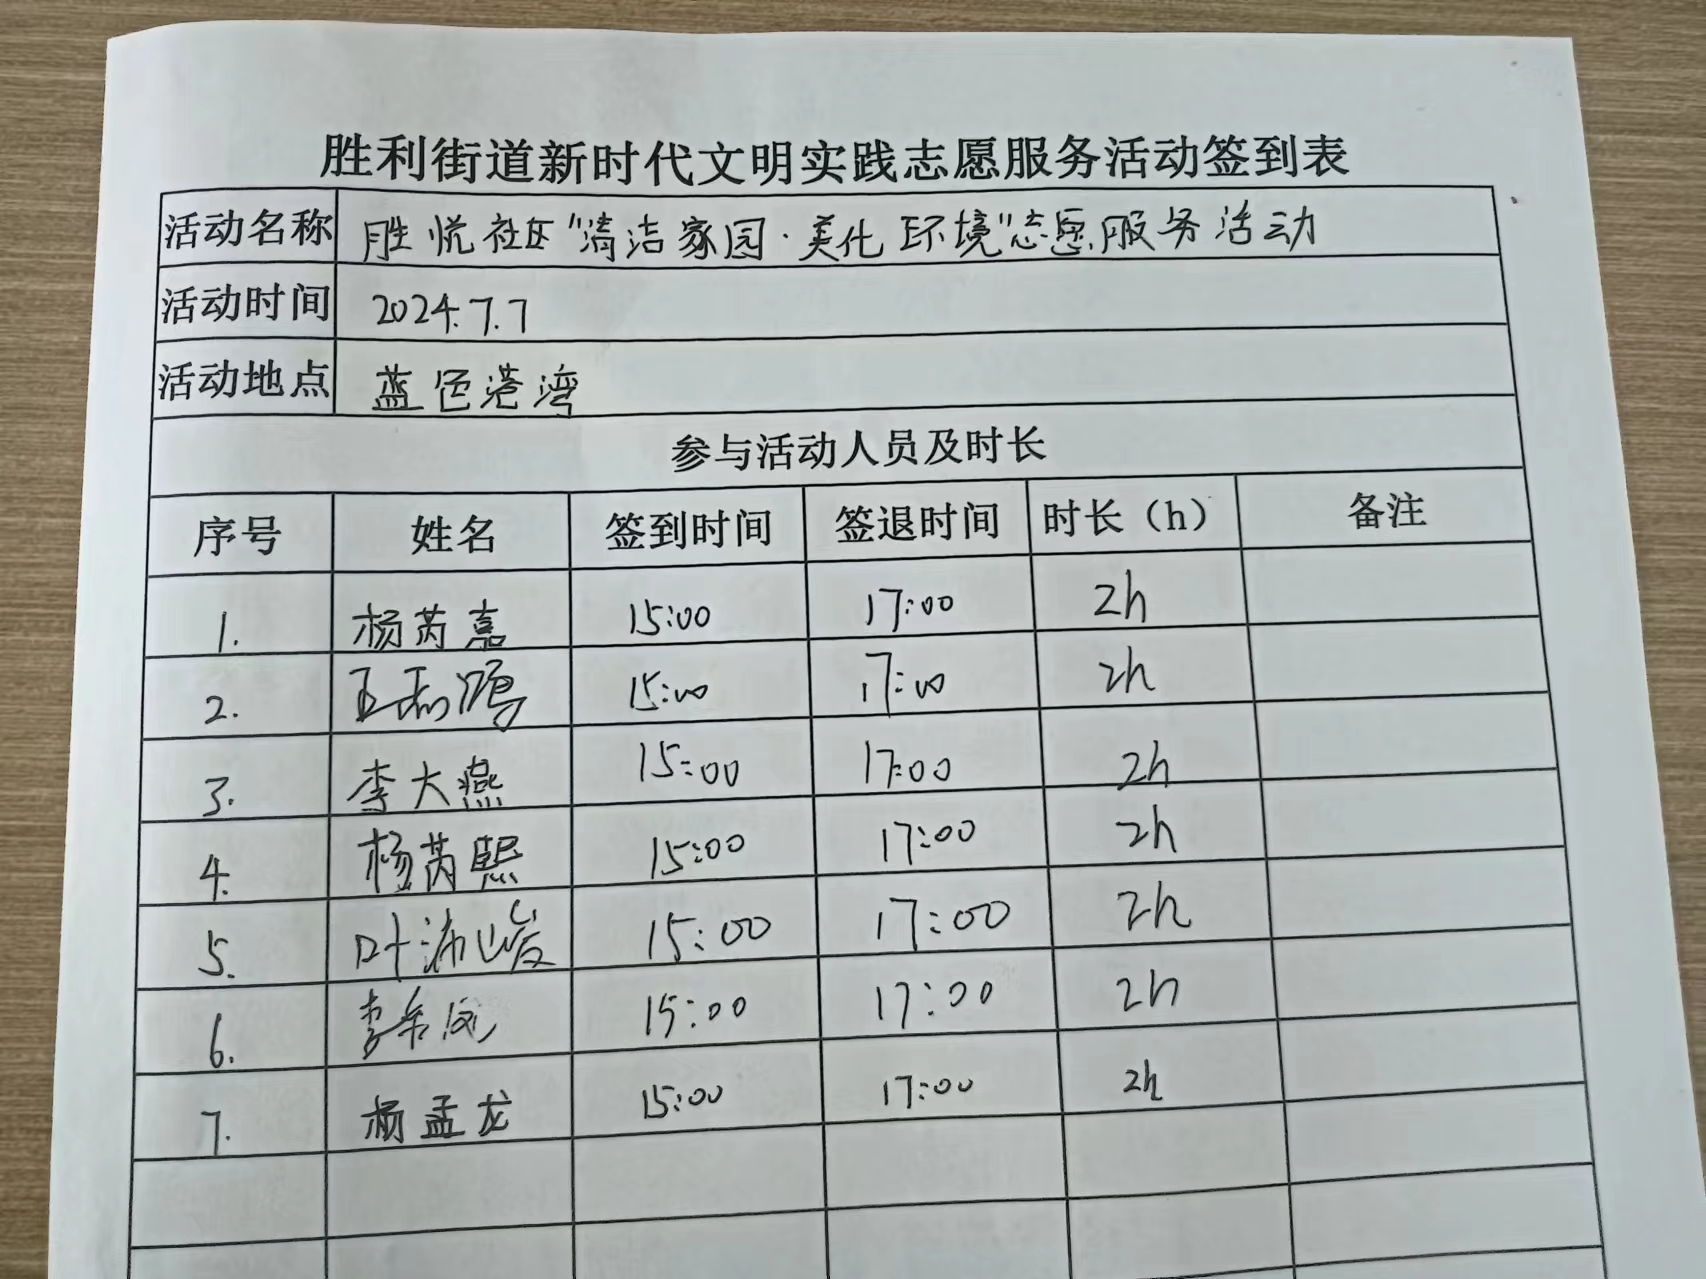 胜利街道新时代文明实践志愿服务活动签到表
活动名称 胜悦社区“清洁家园·美化环境”志愿服务活动
活动时间 2024.7.7
活动地点 蓝色港湾
参与活动人员及时长
序号 姓名 签到时间 签退时间 时长（h） 备注
1. 杨芮嘉 15:00 17:00 2h
2. 15:00 17:00 2h
3. 李大燕 15:00 17:00 2h
4. 杨芮熙 15:00 17:00 2h
5. 15:00 17:00 2h
6. 15:00 17:00 2h
7. 杨孟龙 15:00 17:00 2h